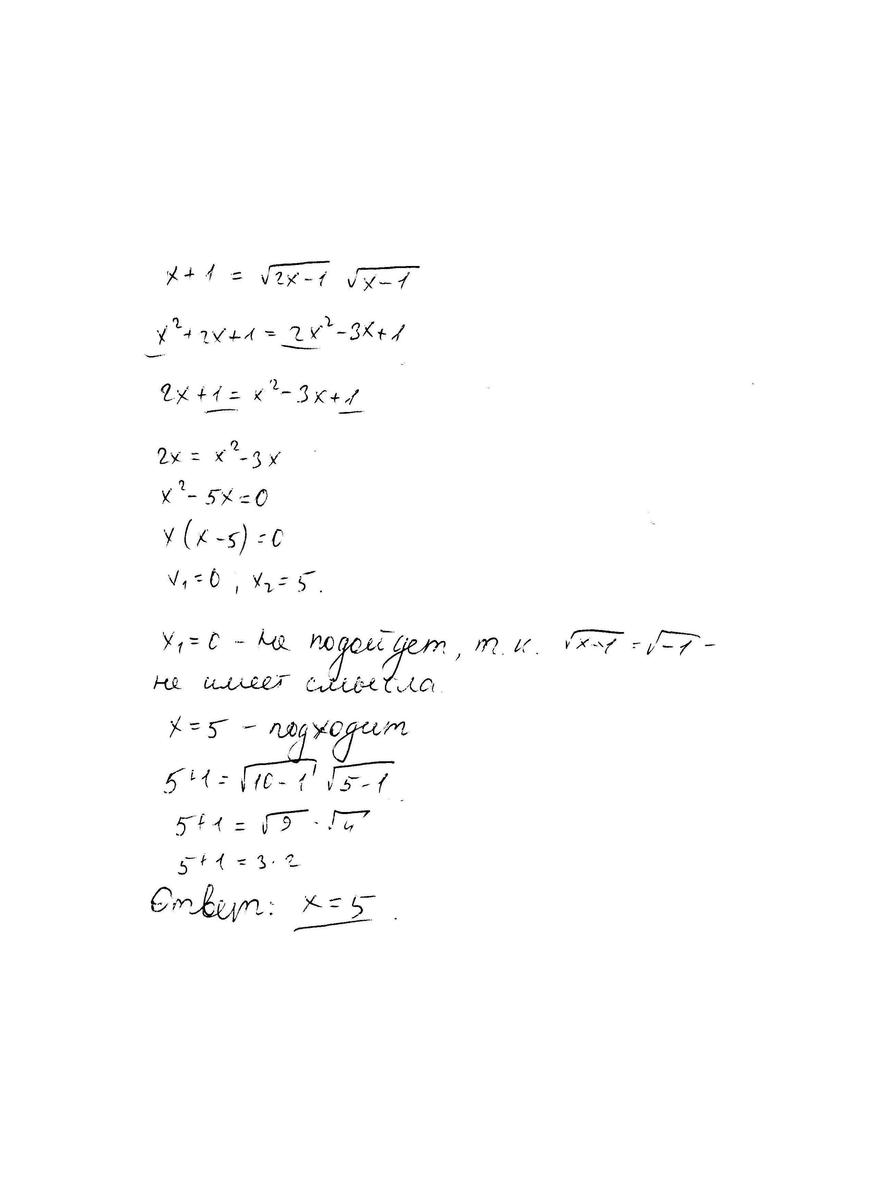 x+1 = √2x-1 √x-1
x²+2x+1 = 2x²-3x+1
2x+1 = x²-3x+1
2x = x²-3x
x²-5x=0
x(x-5)=0
x₁=0, x₂=5.
x₁=0 - не подойдет, т.к. √x-1 = √-1 -
не имеет смысла.
x=5 - подходит
5+1 = √10-1 √5-1
5+1 = √9 · √4
5+1 = 3·2
Ответ: x=5.